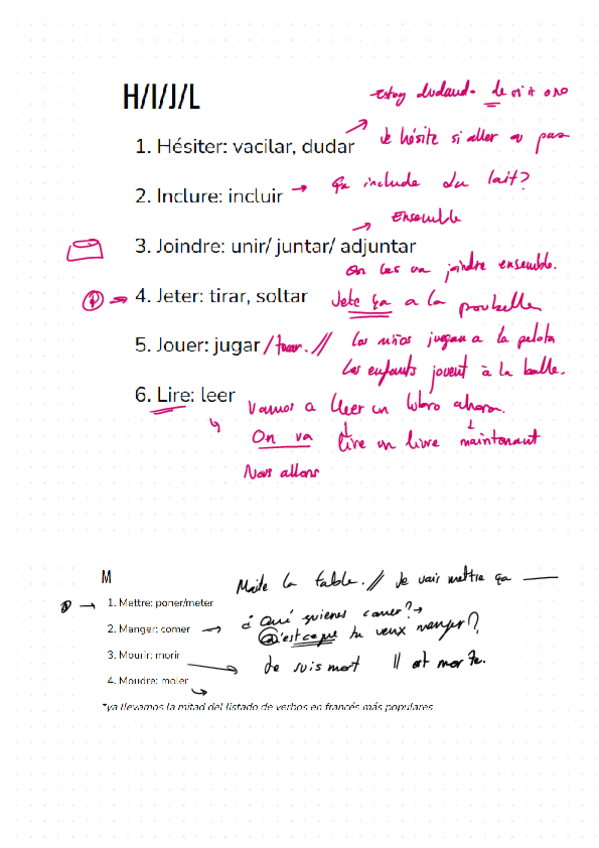 H/I/J/L
Estoy dudando de si ir o no
1. Hésiter: vacilar, dudar
Je hésite si aller o pas
2. Inclure: incluir → Ça include du lait?
Ensemble
3. Joindre: unir/ juntar/ adjuntar
On les va joindre ensemble.
4. Jeter: tirar, soltar
Jete ça a la poubelle
5. Jouer: jugar / tocar. //
Los niños juegan a la pelota
Les enfants jouent à la balle.
6. Lire: leer
Vamos a lleer un libro ahora.
On va lire un livre maintenant
Nous allons
M
la table. // Je vais mettre ça
1. Mettre: poner/meter
¿Qué quieres comer? →
2. Manger: comer →
Qu'est ce que tu veux manger?
3. Mourir: morir
Je suis mort Il est morte.
4. Moudre: moler
*ya llevamos la mitad del listado de verbos en francés más populares